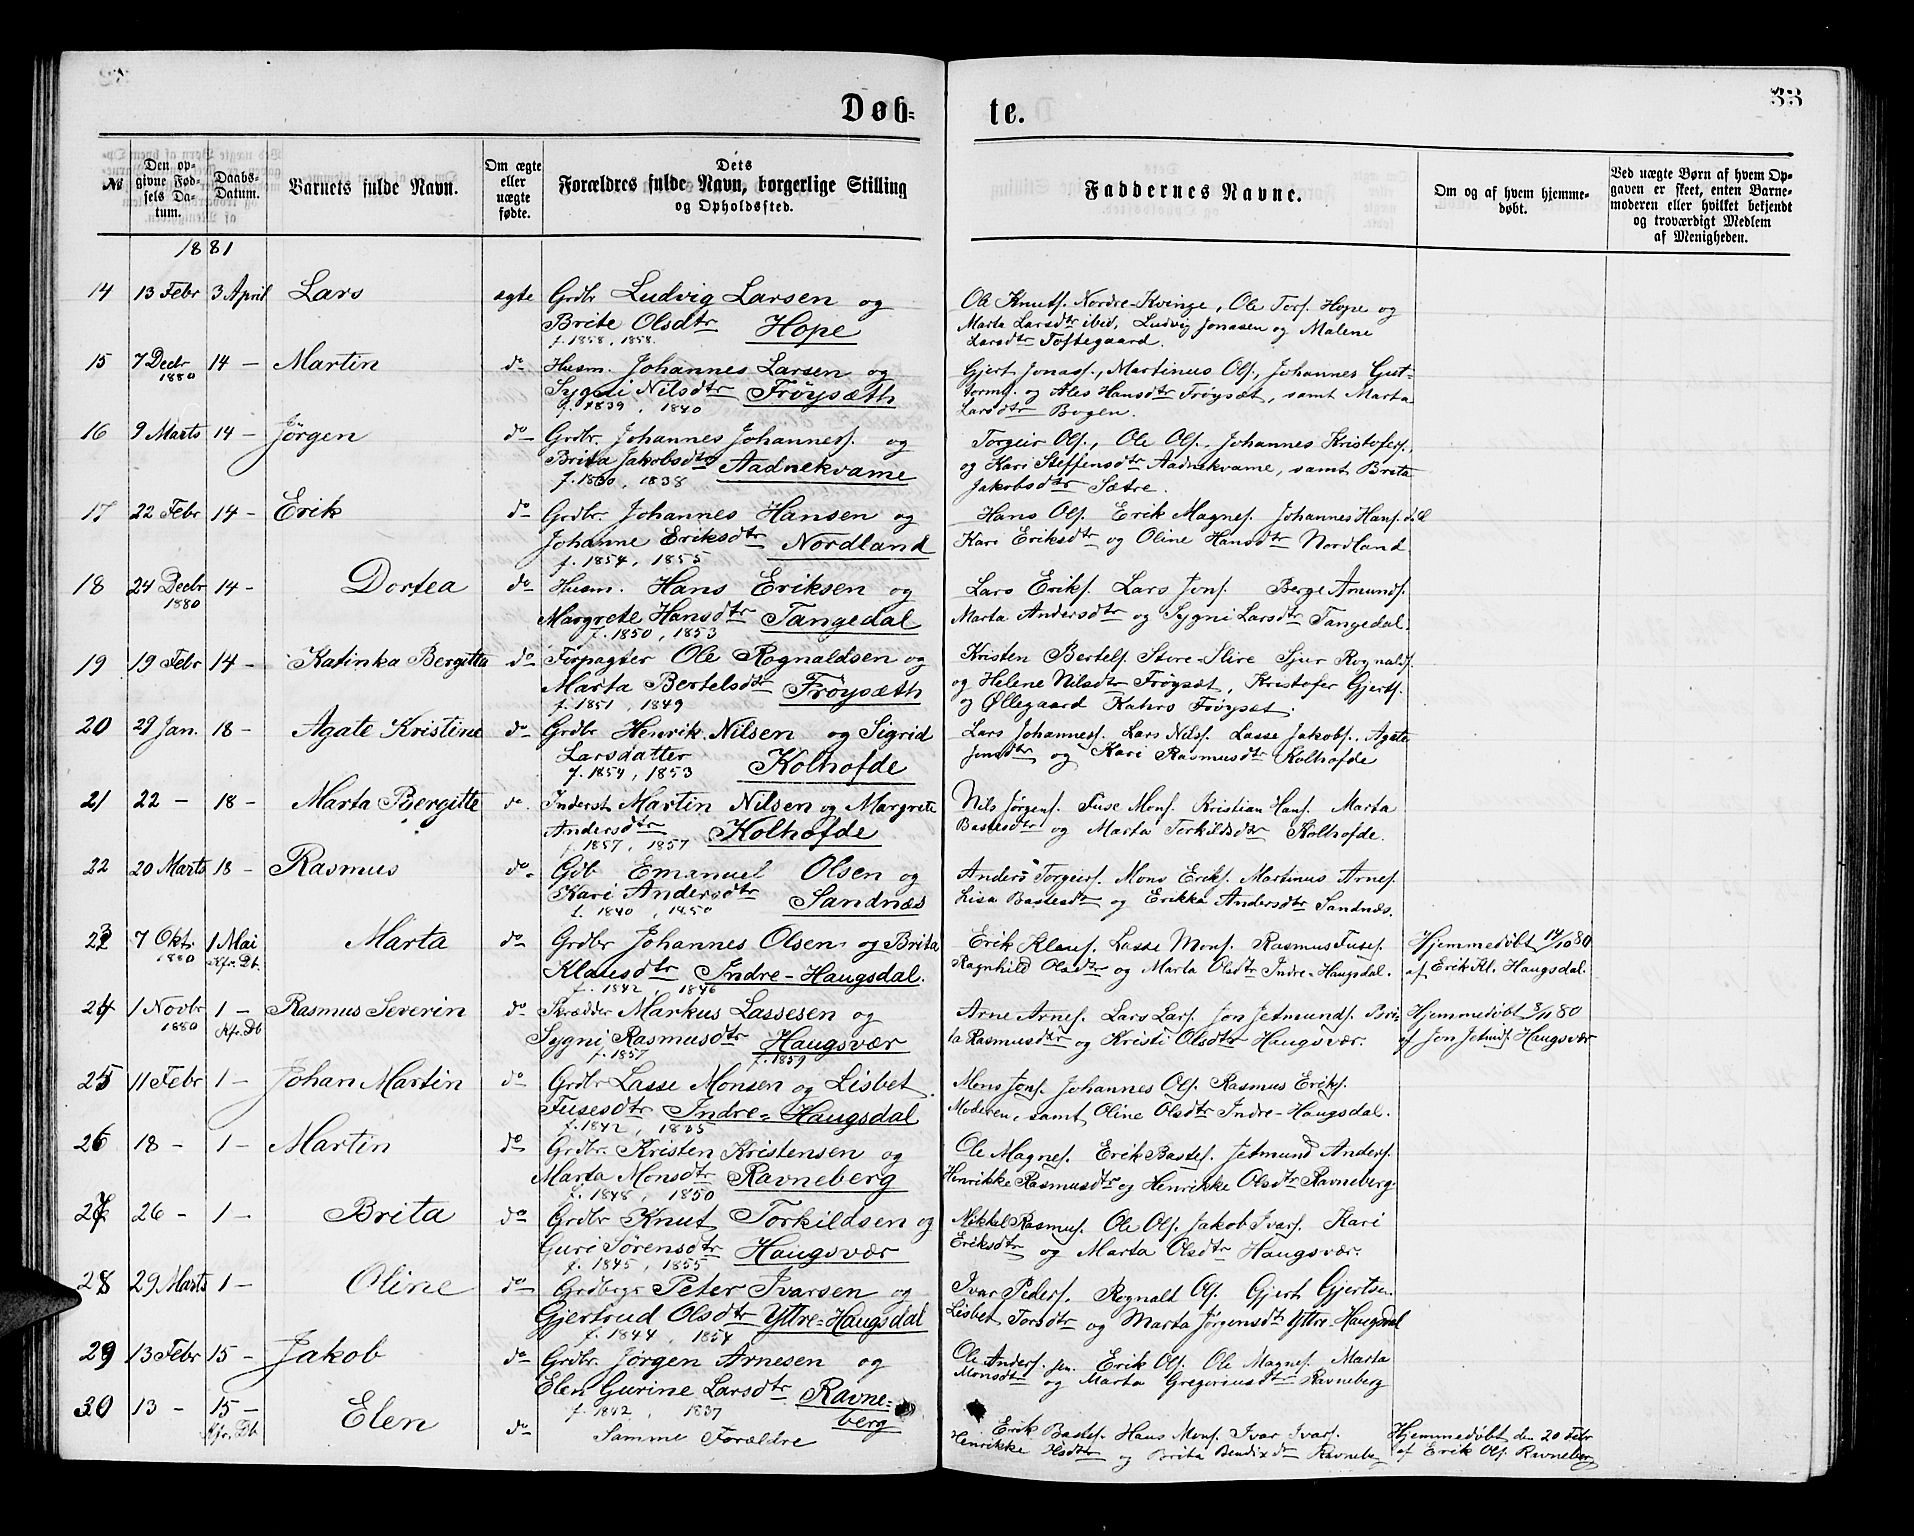 33
Døb-
te.
№
Den op-
givne Fød-
sels Da-
tum.
Daabs-
Datum.
Barnets fulde Navn.
Om ægte
eller
uægte
fødte.
Dets
Forældres fulde Navn, borgerlige Stilling
og Opholdssted.
Faddernes Navne.
Om og af hvem hjemme-
døbt.
Ved uægte Børn af hvem Op-
gaven er skeet, enten Barne-
moderen eller hvilket bekjendt
og troværdigt Medlem
af Menigheden.
1881
14 13 Febr 3 April Lars ægte Grdbr Ludvig Larsen og
Brite Olsdtr Hope
f. 1858, 1858.
Ole Knuts. Nordre-Kvinge, Ole Tors. Hope og
Marta Larsdtr ibid, Ludvig Jonassen og Malene
Larsdtr Toftegaard.
15 7 Decbr 1880 14 – Martin do Husm. Johannes Larsen og
Sygni Nilsdtr Frøysæth
f. 1839, 1840
Gjert Jonass., Martinus Ols., Johannes Gut-
torms. og Ales Hansdtr Frøysæt, samt Marta
Larsdtr Bogen.
16 9 Marts 14 – Jørgen do Grdbr. Johannes Johanness. og
Brita Jakobsdtr Aadnekvame
f. 1830, 1838
Torgeir Ols., Ole Ols., Johannes Kristofers.,
og Kari Steffensdtr Aadnekvame, samt Brita
Jakobsdtr Sætre.
17 22 Febr 14 – Erik do Grdbr. Johannes Hansen og
Johanne Eriksdtr Nordland
f. 1854, 1855
Hans Ols. Erik Magnes. Johannes Hans.
Kari Eriksdtr og Oline Hansdtr Nordland
18 24 Decbr 1880 14 – Dortea do Husm. Hans Eriksen og
Margrete Hansdtr Tangedal
f. 1850, 1853
Lars Eriks. Lars Jons. Berge Amunds.
Marta Andersdtr og Sygni Larsdtr Tangedal.
19 19 Febr 14 – Katinka Bergitta do Forpagter Ole Rognaldsen og
Marta Bertelsdtr Frøysæth
f. 1851, 1849
Kristen Bertels. Store-Slire Sjur Rognalds.
og Helene Nilsdtr Frøysæt, Kristofer Gjerts.
og Øllegaard Kahrs Frøysæt.
20 29 Jan. 18 – Agate Kristine do Grdbr Henrik Nilsen og Sigrid
Larsdatter Kolhofde
f. 1854, 1853
Lars Johanness. Lars Nils. Lasse Jakobs., Agate
Jonsdtr og Kari Rasmusdtr Kolhofde
21 22 – 18 – Marta Bergitte do. Inderst Martin Nilsen og Margrete
Andersdtr Kolhofde
f. 1857, 1857
Nils Jørgens. Fuse Mons. Kristian Hans. Marta
Bastesdtr og Marta Torkildsdtr Kolhofde.
22 20 Marts 18 – Rasmus do. Gdb Emanuel Olsen og
Kari Andersdtr Sandnæs
f. 1840, 1850
Anders Torgeirs. Mons Eriks. Martinus Arnes.
Lisa Bastesdtr og Erikka Andersdtr Sandnæs.
23 7 Okt. 1880 1 Mai Kfr. Db. Marta do Grdbr Johannes Olsen og Brita
Klausdtr Indre-Haugsdal.
f. 1842, 1846
Erik Klaus. Lasse Mons. Rasmus Fuses.
Ragnhild Olsdtr og Marta Olsdtr Indre-Haugsdal.
Hjemmedøbt 14/10 80
af Erik Kl. Haugsdal.
24 1 Novbr 1880 1 – Kfr. Db Rasmus Severin do Skrædder Markus Lassesen og
Sygni Rasmusdtr Haugsvær
f. 1857 f. 1859
Arne Arnes. Lars Lars. Jon Jetmunds. Bri-
ta Rasmusdtr og Kristi Olsdtr Haugsvær.
Hjemmedøbt 3/11 80
af Jon Jetmds. Haugsvær
25 11 Febr 1 – Johan Martin do Grdbr Lasse Monsen og Lisbet
Fusesdtr Indre-Haugsdal
f. 1842, 1835
Mons Jons. Johannes Ols. Rasmus Eriks.
Moderen, samt Oline Olsdtr Indre-Haugsdal.
26 18 – 1 – Martin do Grdbr. Kristen Kristensen og
Marta Monsdtr Ravneberg
f. 1848, 1850
Ole Magnes. Erik Bastes. Jetmund Anders.
Henrikke Rasmusdtr og Henrikke Olsdtr Ravneberg
27 26 – 1 – Brita do Grdbr Knut Torkildsen og
Guri Sørensdtr Haugsvær
f. 1845, 1855
Nikkel Rasmus. Ole Ols. Jakob Ivars. Kari
Eriksdtr og Marta Olsdtr Haugsvær.
28 29 Marts 1 – Oline do Grdbrgr Peter Ivarsen og
Gjertrud Olsdtr Yttre-Haugsdal
f. 1844, 1854
Ivar Peders. Rognald Ols. Gjert Gjertsen.
Lisbet Torsdtr og Marta Jørgensdtr Yttre-Haugsdal
29 13 Febr 15 – Jakob do Grdbr. Jørgen Arnesen og
Elen Gurine Larsdtr Ravne-
berg
f. 1842, 1837
Ole Anders. sen. Erik Ols. Ole Magnes. Marta
Monsdtr og Marta Gregoriusdtr Ravneberg
30 13 – 15 – Kfr. Db Elen do Samme Forældre
Erik Bastes. Hans Mons. Ivar Ivars.
Henrikke Olsdtr og Brita Bendixdtr Ravneberg
Hjemmedøbt den 20 Febr
af Erik Ols. Ravneberg